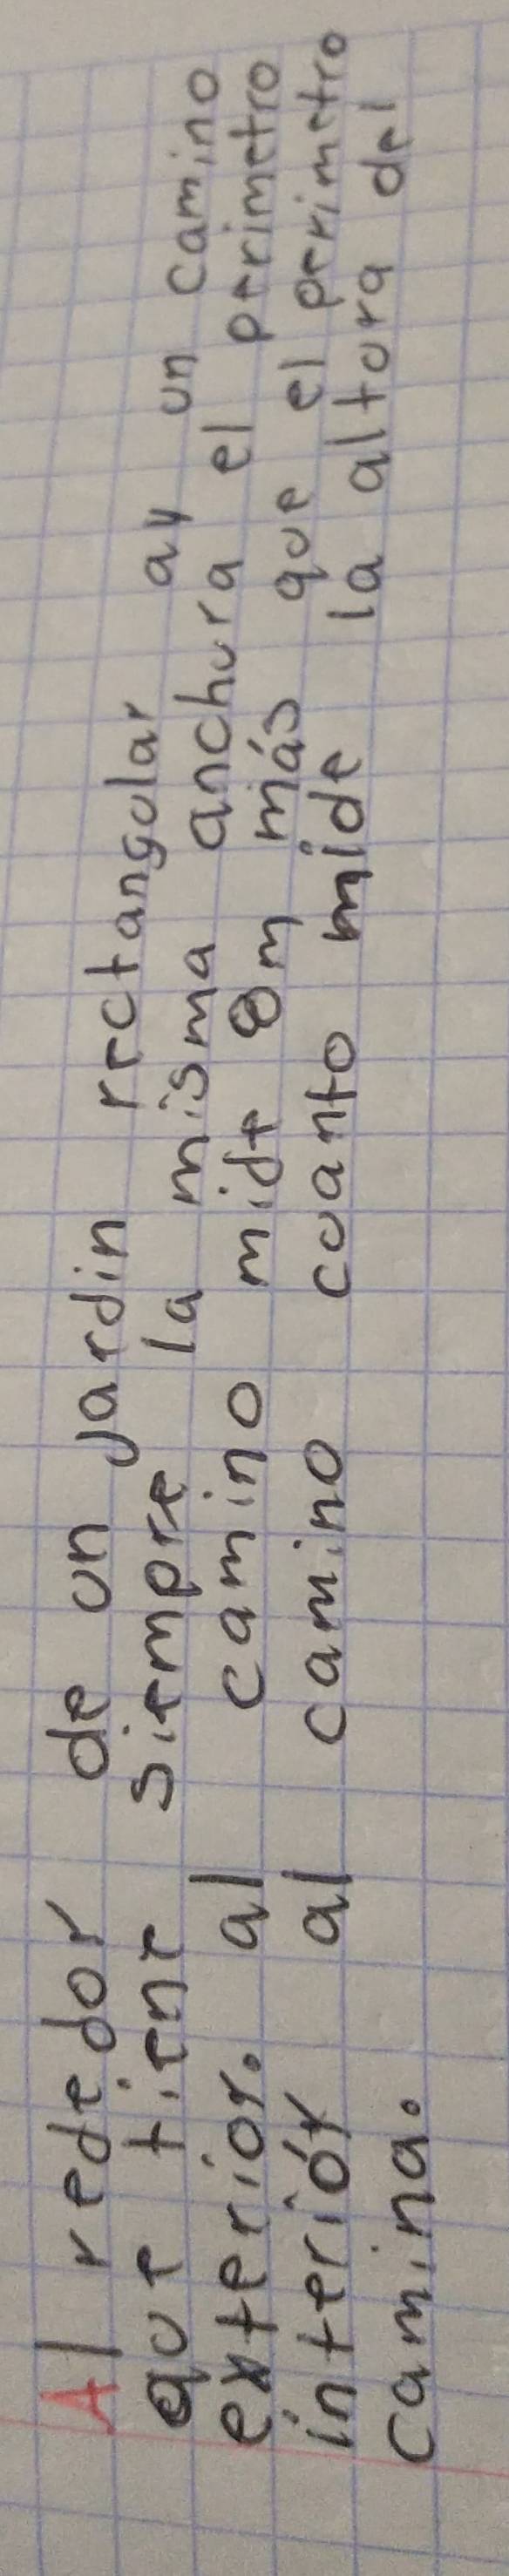 Al rededor de un jardin rectangular ay un camino
que tiene siempre la misma anchura el perimetro
exterior. al camino mide 8m más que el perimetro
interiór al camino cuanto mide la altura del
camina.